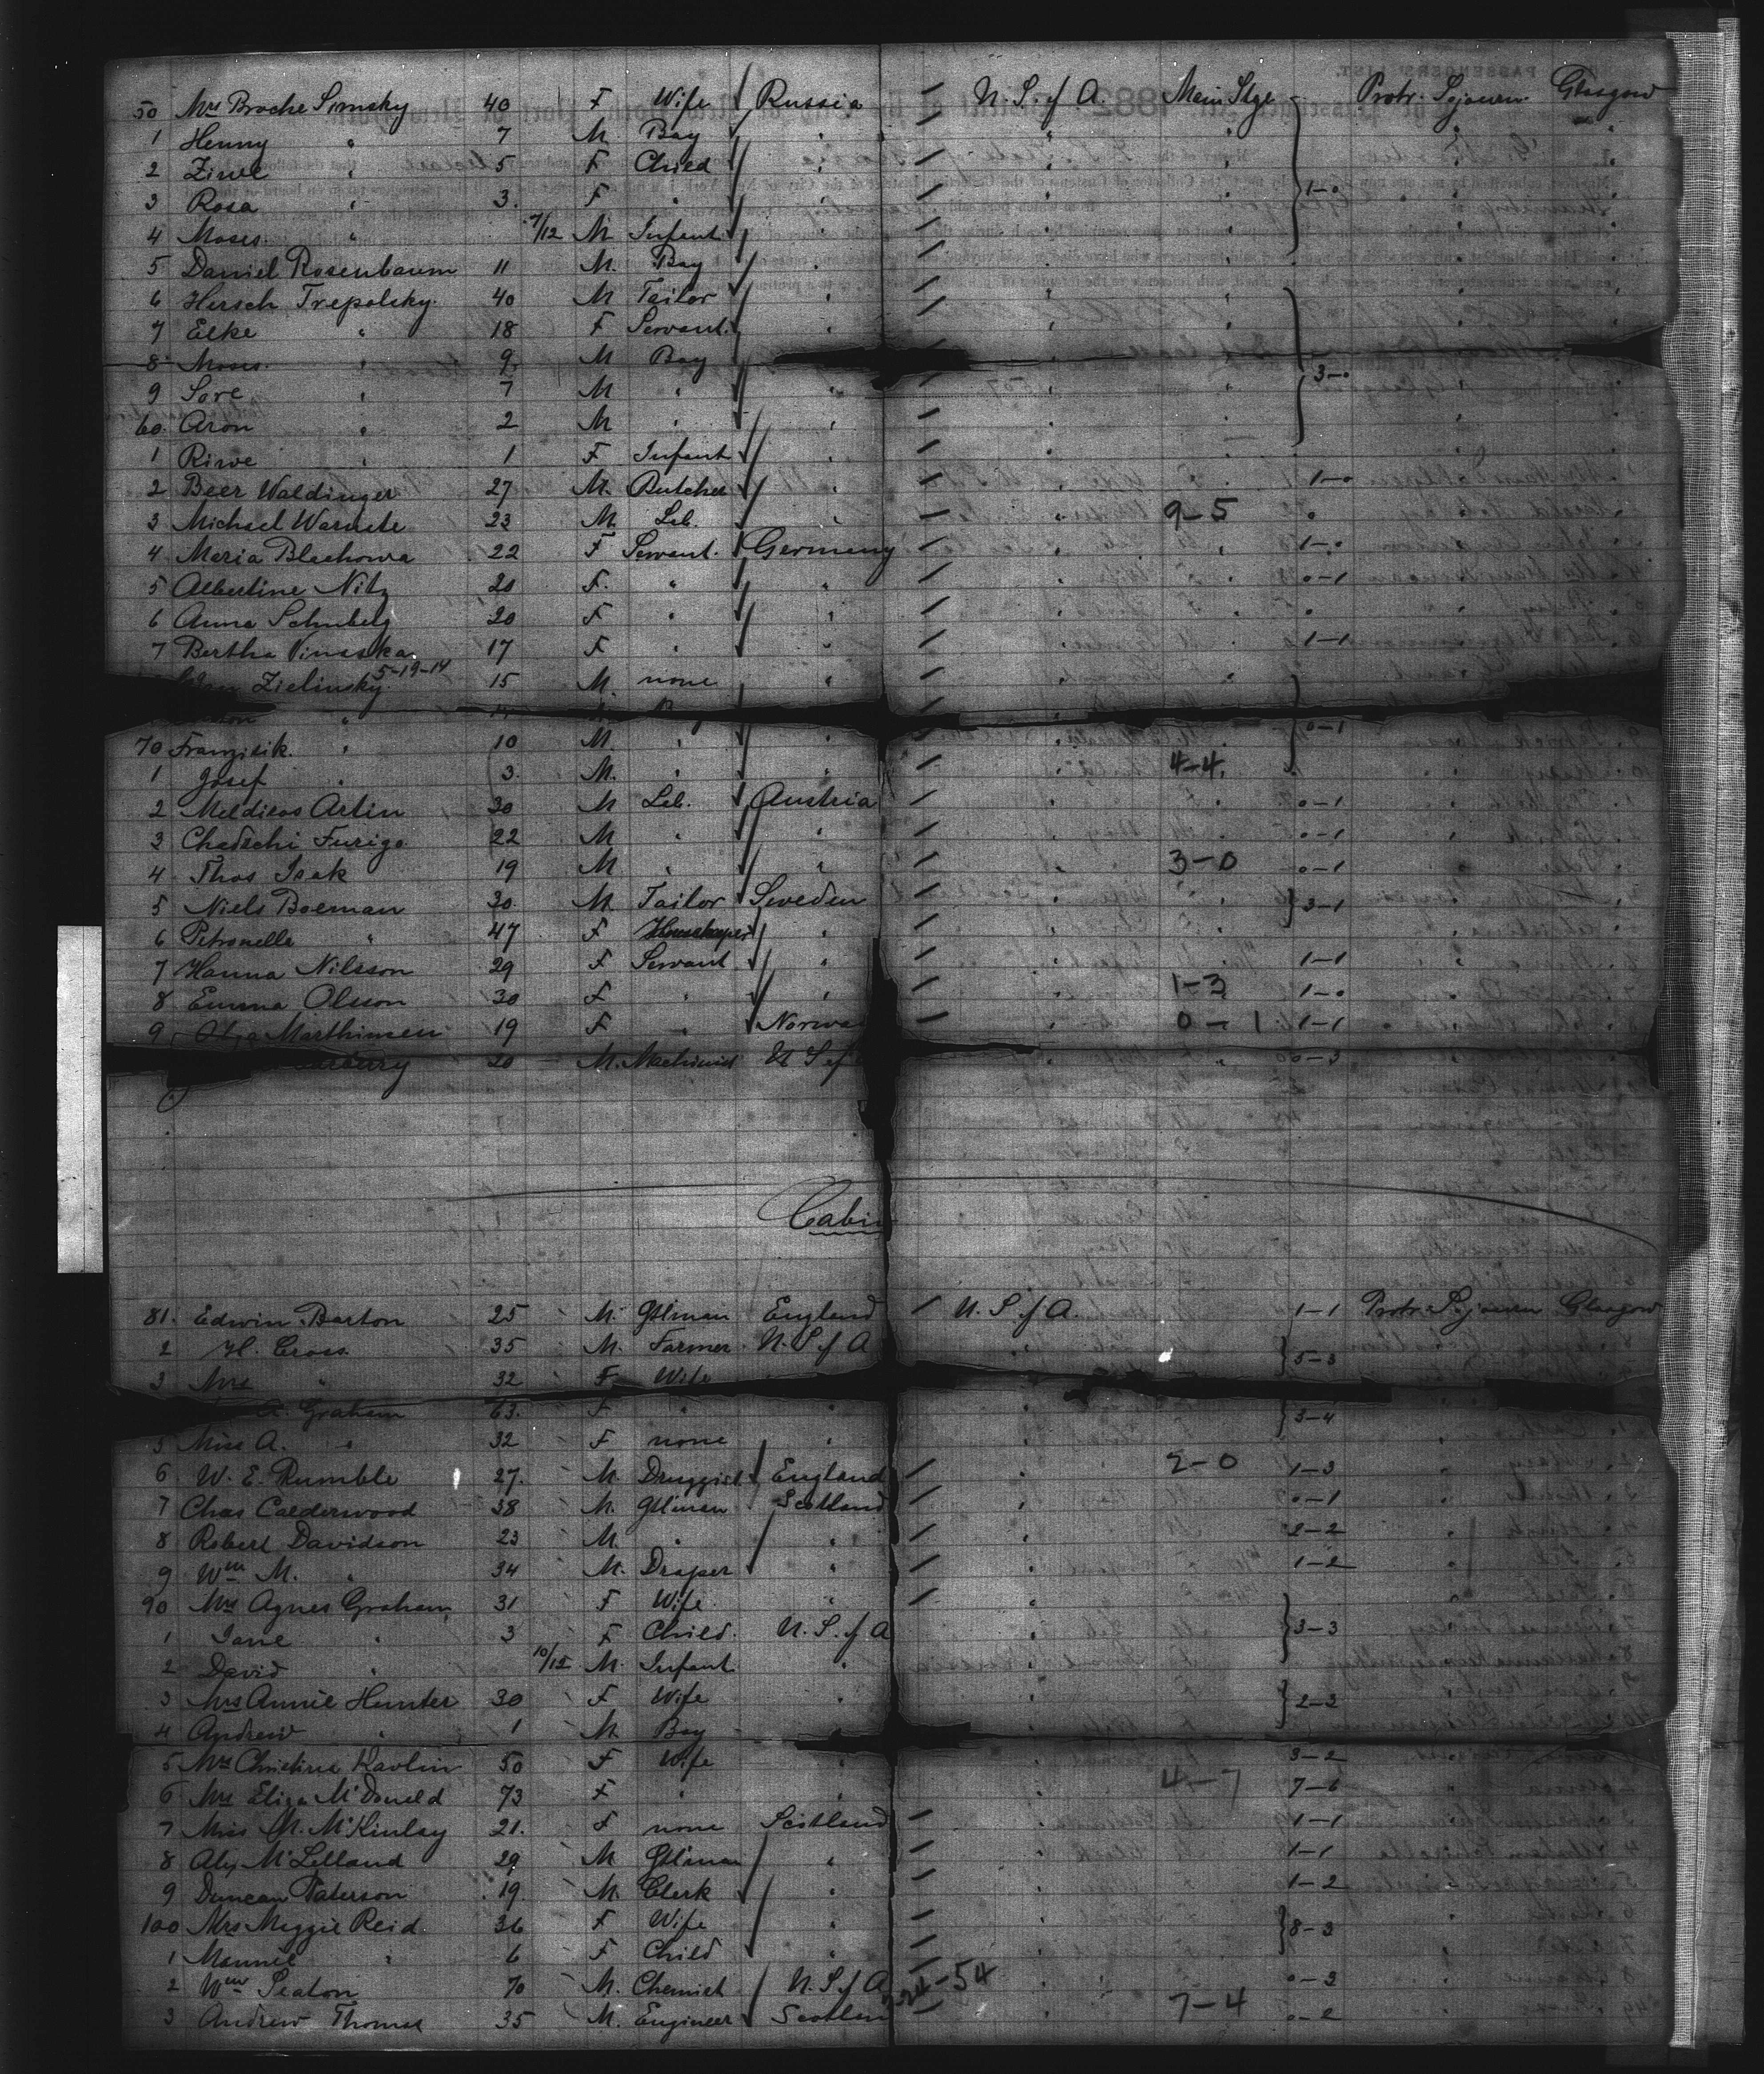 50 Mrs Broche Simsky 40 F Wife Russia U.S. of A. Main Stge Protr. Sojourn Glasgow
1 Henny " 7 M. Boy " " "
2 Ziwe " 5 F Child " " "
3 Rosa " 3. F " " " 1-0
4 Moses " 7/12 M Infant " " "
5 Daniel Rosenbaum 11 M. Boy " " "
6 Hersch Trepolsky 40 M Tailor " " "
7 Elke " 18 F Servant " " "
8 Moses " 9 M Boy
9 Sore " 7 M " " " " 3-0
60 Aron " 2 M " " " "
1 Rirve " 1 F Infant " " "
2 Beer Waldinger 27 M. Butcher " " 1-0
3 Michael 23 M. Lab. " " 9-5 "
4 Maria Blachowa 22 F Servant. Germany " " 1-0
5 Albertine Nitz 20 F. " " " " 0-1
6 Anna Schubelg 20 F " " " " "
7 Bertha 17 F " " " " 1-1
Zielinsky 5-19-14 15 M. none "
"
70 Franzisik. " 10 M " " " " 0-1
1 Josef " 3. M. " " " 4-4
2 Meldicos Artin 30 M Lab. Austria " " 0-1
3 Chadschi Furigo 22 M " " " " 0-1
4 Thos Isak 19 M " " " 3-0 0-1
5 Niels Boeman 30. M Tailor Sweden " " 3-1
6 Petronella " 47 F Housekeeper " " "
7 Hanna Nilsson 29 F Servant " " " 1-1
8 Emma Olsson 30 F " " " 1-3 1-0
9 Olga Marthinsen 19 F " Norwa " 0-1 1-1
20 M. Machinist U S of " " 0-3
Cabin
81. Edwin Barton 25 M. Gtlman England U.S. of A. 1-1 Protr. Sojourn Glasgow
2 H. Cross 35 M. Farmer U.S. of A
3 Mrs " 32 F. Wife 5-3
A. Graham 63. F " " 3-4
5 Miss A. " 32 F none "
6 W. E. Rumble 27. M. Druggist England " 2-0 1-3
7 Chas Calderwood 38 M. Gtlman Scotland " 0-1
8 Robert Davidson 23 M. " " " 2-2
9 Wm M. " 34 M. Draper " " 1-2
90 Mrs Agnes Graham 31 F Wife " "
1 Jane " 3 F Child. U.S. of A " 3-3
2 David " 10/12 M. Infant " "
3 Mrs Annie Hunter 30 F Wife " " 2-2
4 Andrew " 1 M. Boy
5 Mrs Christina 50 F Wife " " 3-2
6 Mrs Eliza McDonald 73 F " " " 4-7 7-6
7 Miss M. McKinlay 21. F none Scotland " 1-1
8 Alex McLelland 29 M Gtlman " " 1-1
9 Duncan Paterson 19 M. Clerk " " 1-2
100 Mrs Meggie Reid. 36 F Wife " " 8-2
1 " 6 F Child " "
2 Wm Seaton 70 M. Chemist U.S. of A 24-54 " 0-3
3 Andrew Thomas 35 M. Engineer Scotlan " 7-4 0-2